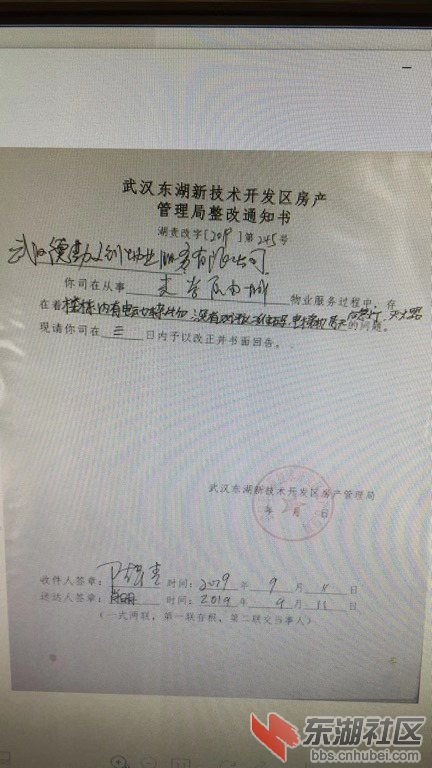 武汉东湖新技术开发区房产
管理局整改通知书
湖责改字[2019]第245号
武汉德勤人创物业服务有限公司
你司在从事 物业服务过程中，存
在着楼栋内有电动车 没有 的问题。
现请你司在三日内予以改正并书面回告。
武汉东湖新技术开发区房产管理局
年 月 日
收件人签章： 时间：2019年9月11日
送达人签章： 时间：2019年9月11日
（一式两联，第一联存根，第二联交当事人）
东湖社区
bbs.cnhubei.com